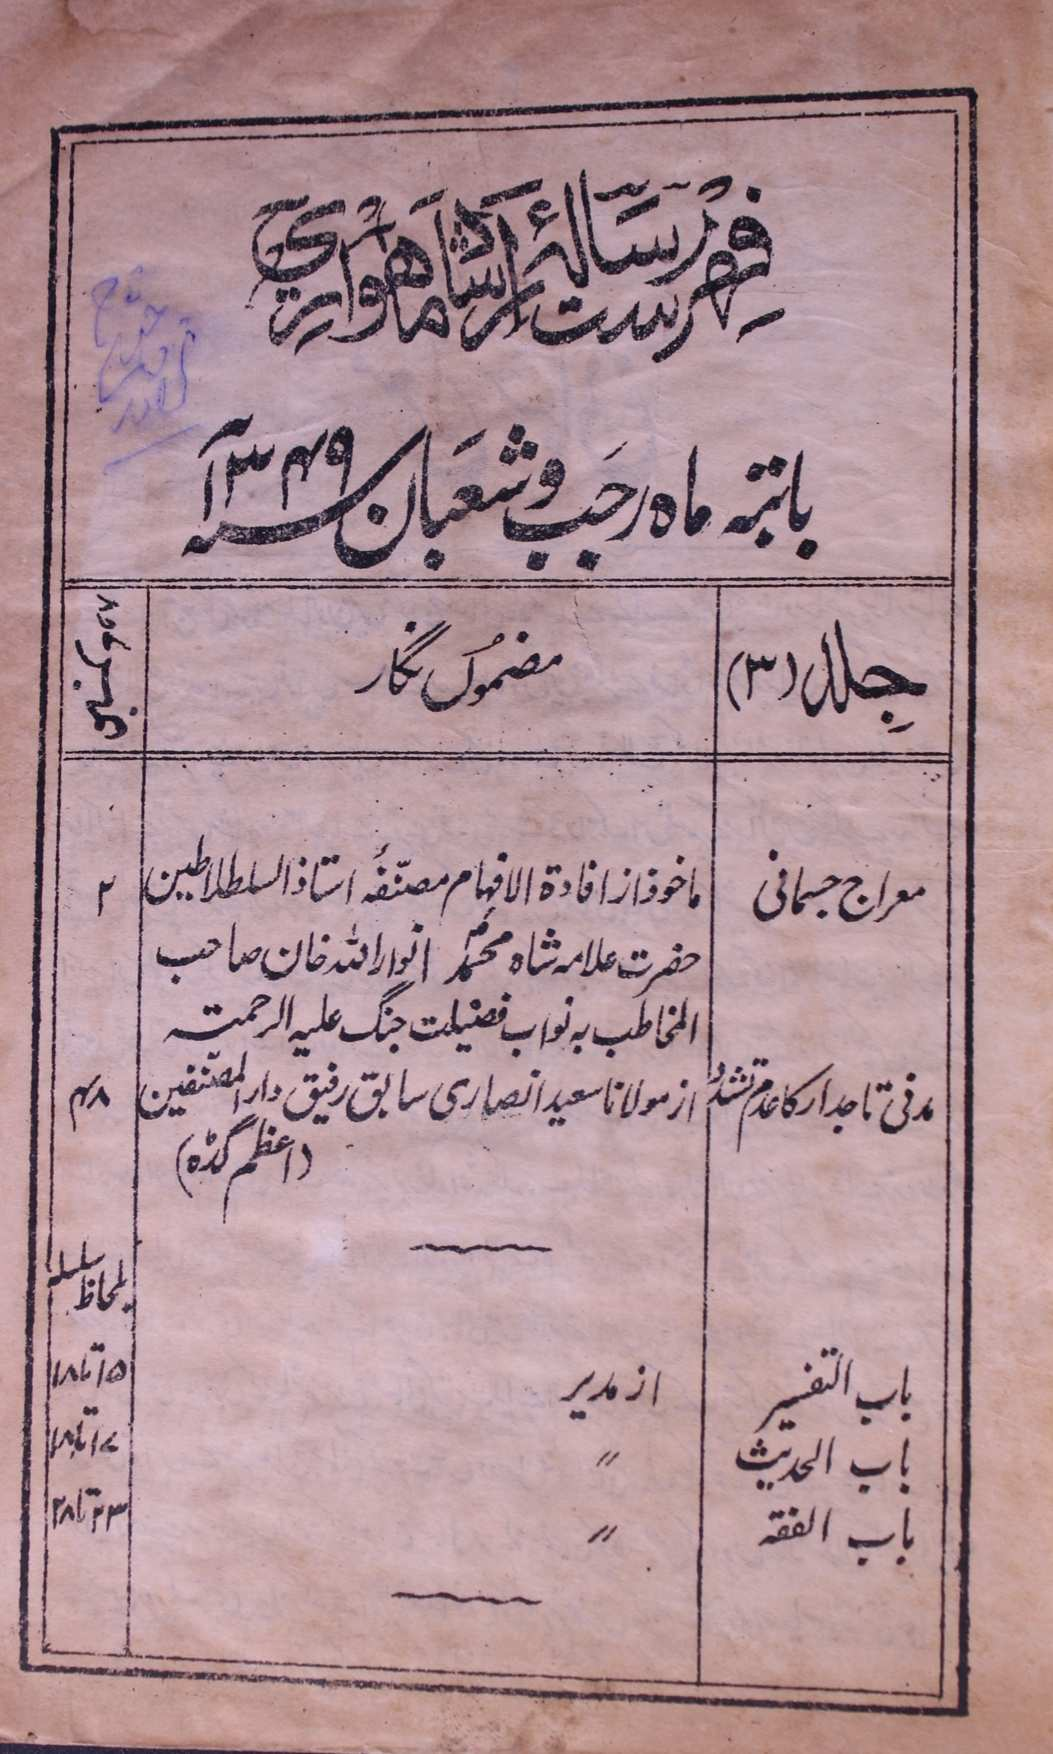 فہرست رسالۂ ارشاد ماہواری
بابتہ ماہ رجب و شعبان سنہ ۱۳۴۹
جلد (۳) مضمون نگار نمبر ۷ و ۸
معراج جسمانی ماخوذ از افادۃ الافہام مصنّفۂ استاذ السلاطین ۲
حضرت علامہ شاہ محمد انوار اللہ خان صاحب
المخاطب بہ نواب فضیلت جنگ علیہ الرحمتہ
مدنی تاجدار کا عدم تشدّد از مولانا سعید انصاری سابق رفیق دار المصنّفین ۴۸
(اعظم گڈہ)
بلحاظ سلسلہ
باب التفسیر از مدیر ۱۵ تا ۱۸
باب الحدیث " ۱۷ تا ۱۸
باب الفقہ " ۲۳ تا ۲۸